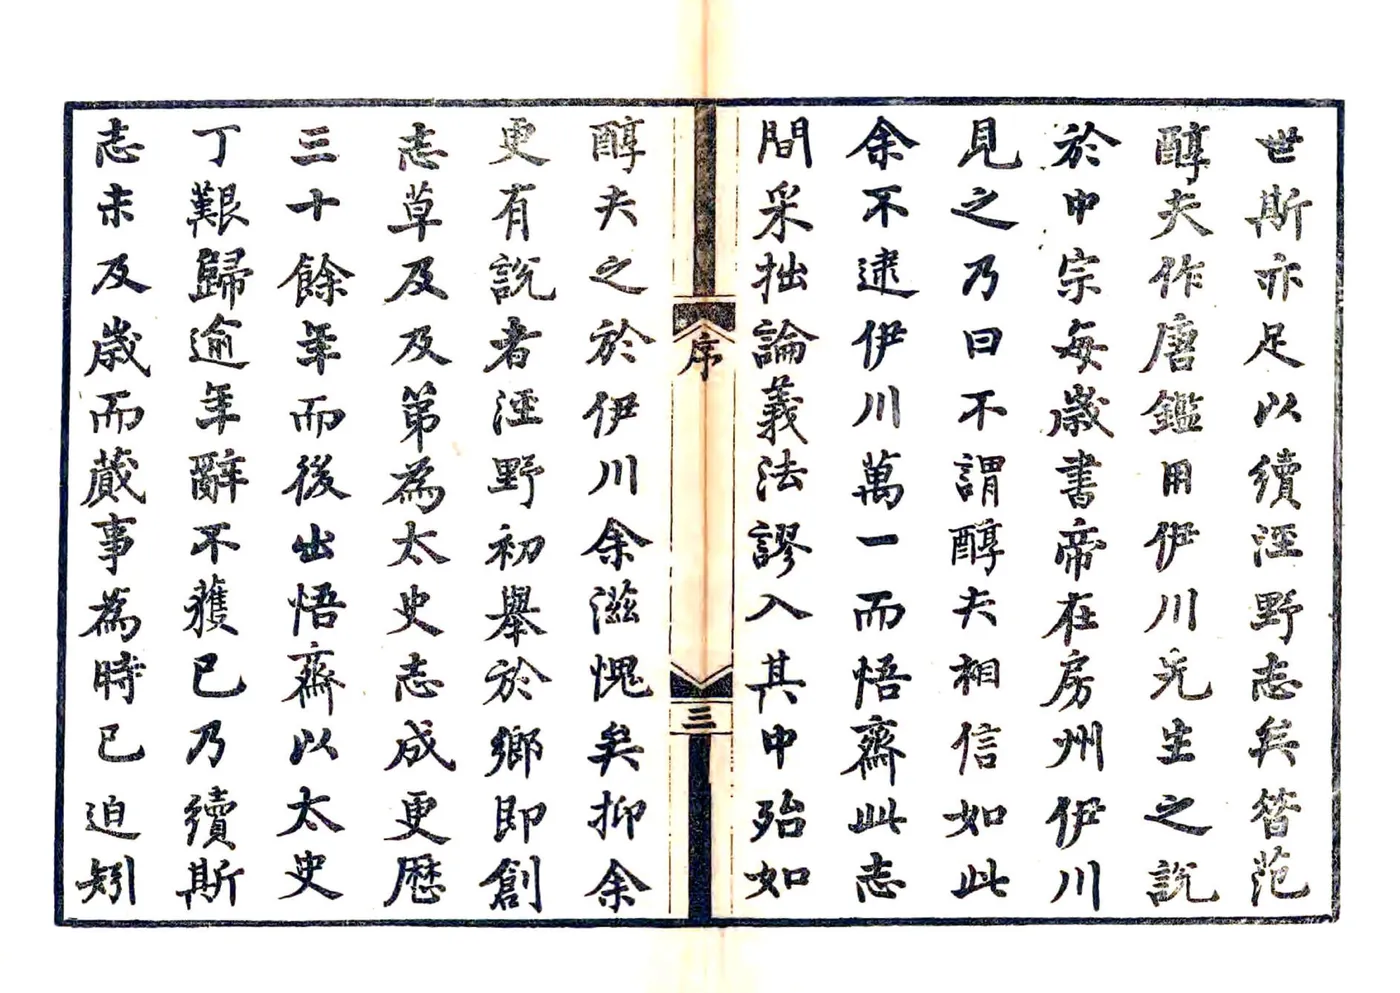 世斯亦足以續涇野志矣昝范
醇夫作唐鑑用伊川先生之說
於中宗每歲書帝在房州伊川
見之乃曰不謂醇夫相信如此
余不逮伊川萬一而悟齋此志
間采拙論義法謬入其中殆如
序
三
醇夫之於伊川余滋愧矣抑余
更有說者涇野初舉於鄉即創
志草及及第為太史志成更歷
三十餘年而後出悟齋以太史
丁艱歸逾年辭不獲已乃續斯
志未及歲而蕆事為時已迫矧